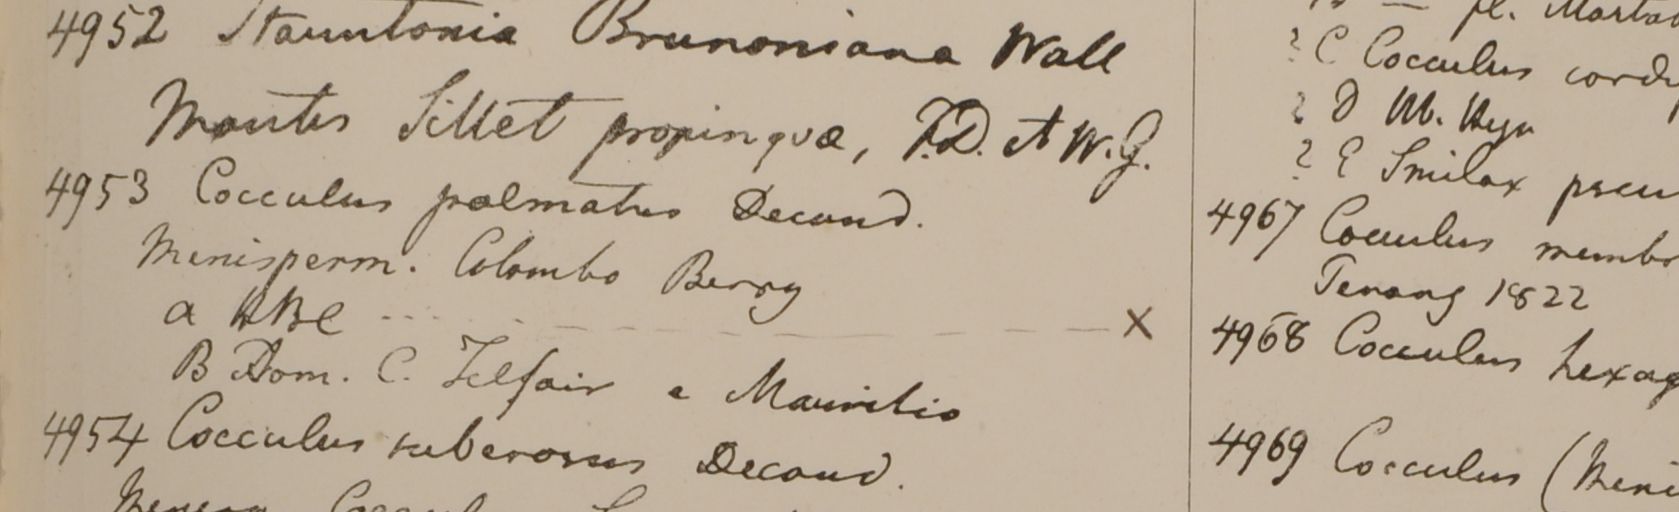 4952 Stauntonia Brunoniana Wall
Montes Sillet propinquæ, F.D. et W.G.
4953 Cocculus palmatus Decand.
Menisperm. Colombo Berry
a HBC ... X
B Dom. C. Telfair e Mauritio
4954 Cocculus suberosus Decand.
fl.
? C Cocculus cord
? D M. Heyn
? E Smilax pseu
4967 Cocculus membr
Penang 1822
4968 Cocculus hexag
4969 Cocculus (Meni